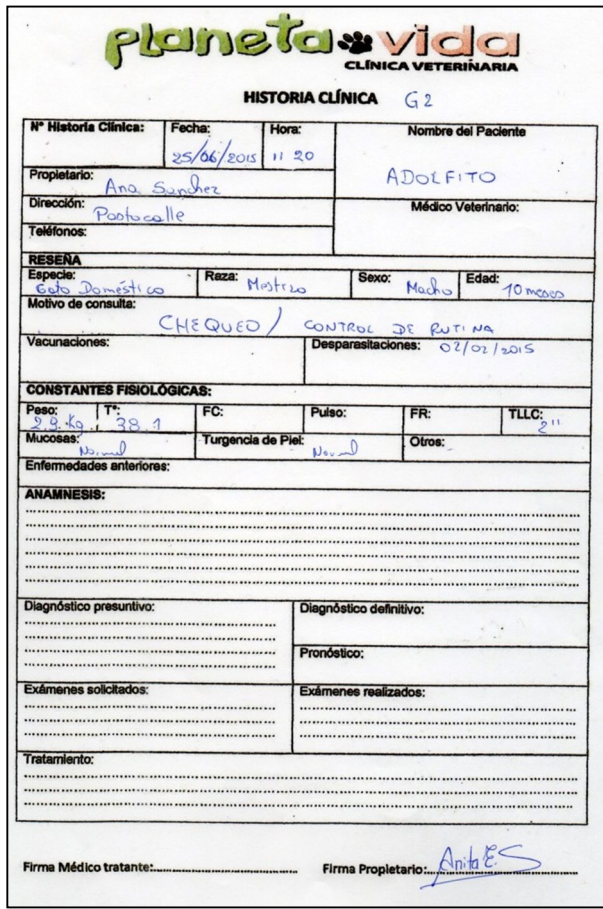 planeta vida
CLÍNICA VETERINARIA
HISTORIA CLÍNICA G2
Nº Historia Clínica: Fecha: Hora: Nombre del Paciente
25/06/2015 11 20
Propietario: Ana Sanchez ADOLFITO
Dirección: Postocalle Médico Veterinario:
Teléfonos:
RESEÑA
Especie: Raza: Sexo: Edad:
Gato Doméstico Mestizo Macho 10 meses
Motivo de consulta:
CHEQUEO / CONTROL DE RUTINA
Vacunaciones: Desparasitaciones: 02/02/2015
CONSTANTES FISIOLÓGICAS:
Peso: Tº: FC: Pulso: FR: TLLC:
2.9 Kg 38.1 2''
Mucosas: Turgencia de Piel: Otros:
Normal Normal
Enfermedades anteriores:
ANAMNESIS:
Diagnóstico presuntivo: Diagnóstico definitivo:
Pronóstico:
Exámenes solicitados: Exámenes realizados:
Tratamiento:
Firma Médico tratante: Firma Propietario: Anita E. S